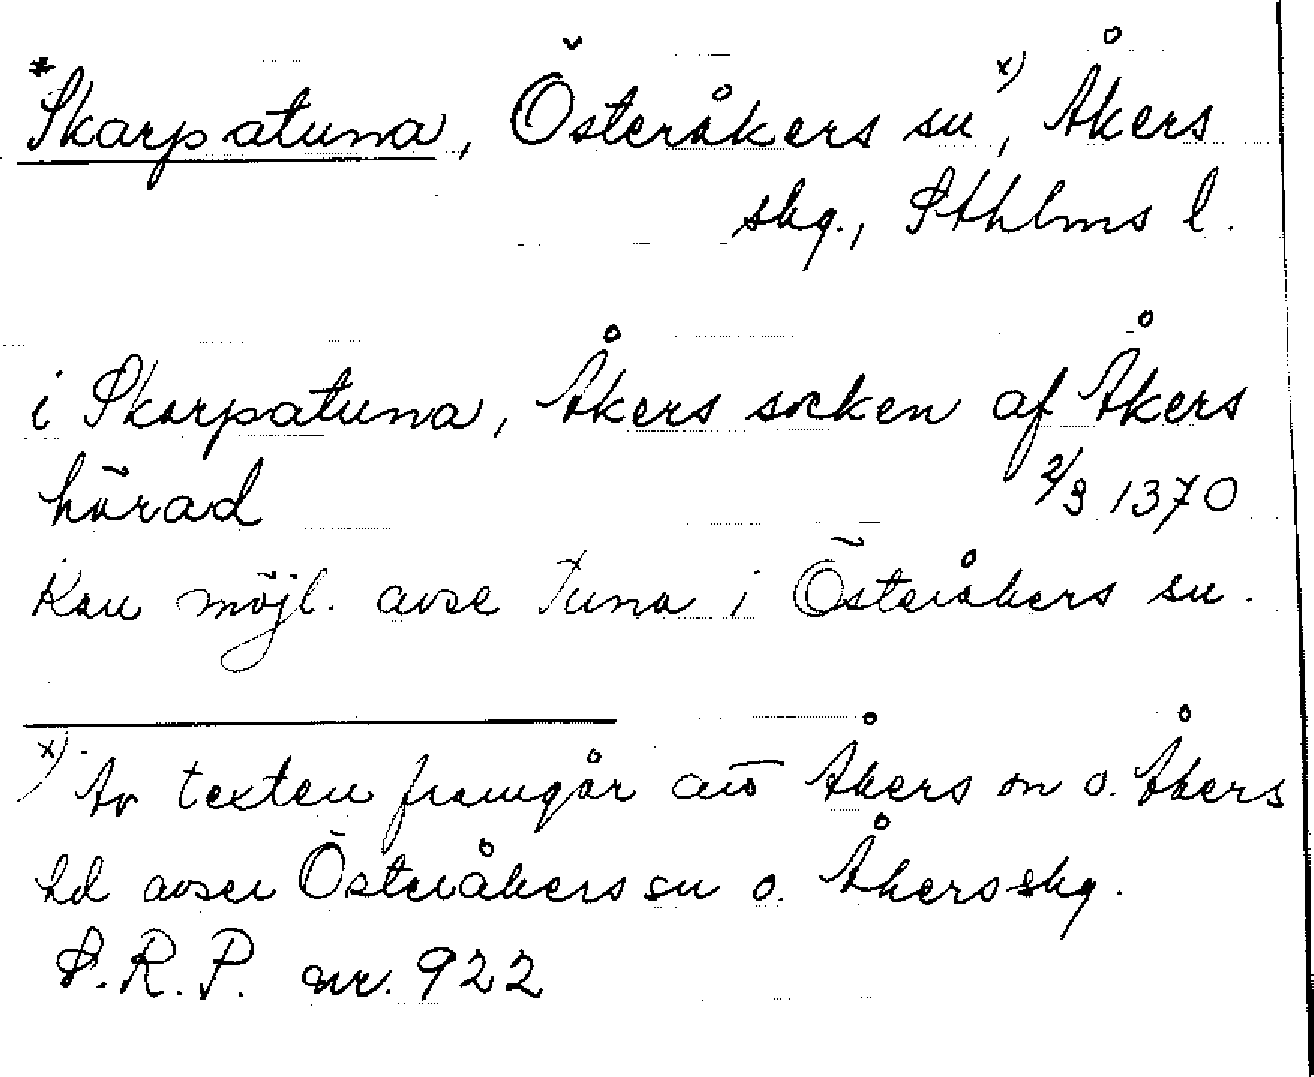 *Skarpatuna, Österåkers sn x), Åkers
skg., Sthlms l.
i Skarpatuna, Åkers socken af Åkers
härad 2/3 1370
Kan möjl. avse Tuna i Österåkers sn.
x) Av texten framgår att Åkers sn o. Åkers
hd avser Österåkers sn o. Åkers skg.
S.R.P. nr. 922